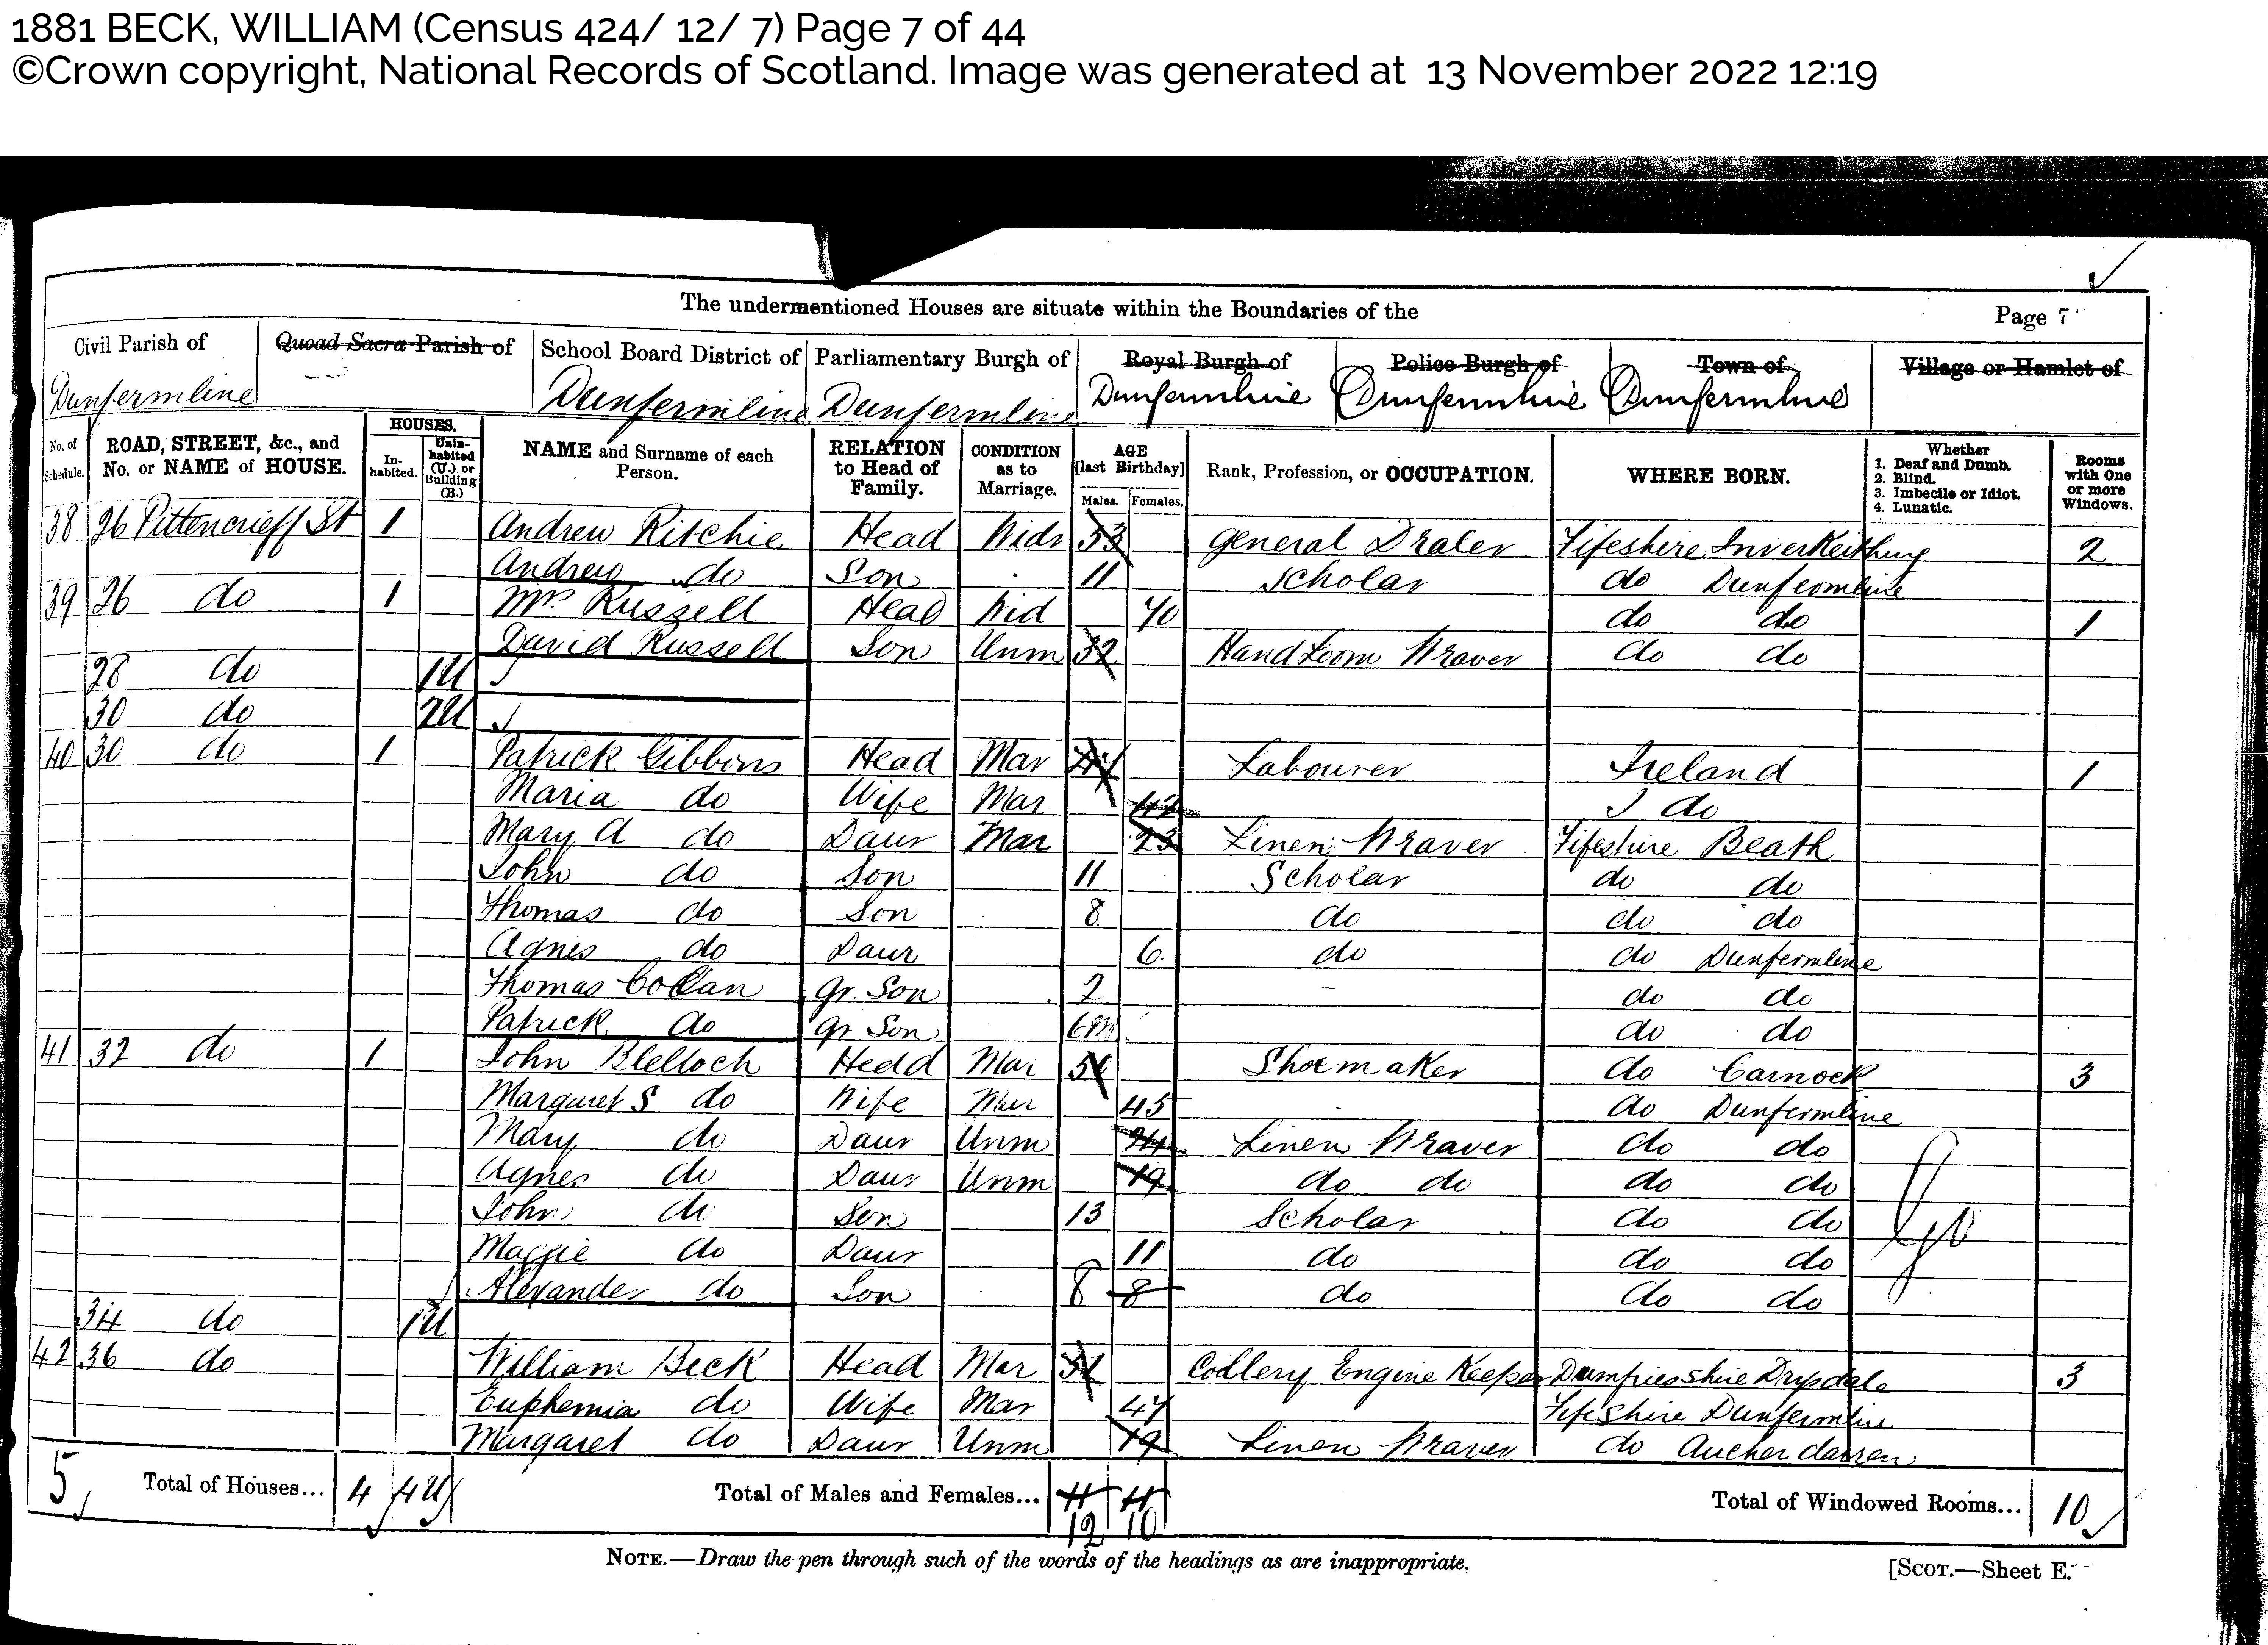 1881 BECK, WILLIAM (Census 424/ 12/ 7) Page 7 of 44
©Crown copyright, National Records of Scotland. Image was generated at 13 November 2022 12:19
The undermentioned Houses are situate within the Boundaries of the
Page 7
Civil Parish of Quoad Sacra Parish of School Board District of Parliamentary Burgh of Royal Burgh of Police Burgh of Town of Village or Hamlet of
Dunfermline Dunfermline Dunfermline Dunfermline Dunfermline Dunfermline
No. of Schedule. ROAD, STREET, &c., and No. or NAME of HOUSE. HOUSES. In-habited. Unin-habited (U.), or Building (B.) NAME and Surname of each Person. RELATION to Head of Family. CONDITION as to Marriage. AGE [last Birthday] Males. Females. Rank, Profession, or OCCUPATION. WHERE BORN. Whether 1. Deaf and Dumb. 2. Blind. 3. Imbecile or Idiot. 4. Lunatic. Rooms with One or more Windows.
38 26 Pittencrieff St 1 Andrew Ritchie Head Widr 53 General Dealer Fifeshire Inverkeithing 2
Andrew do Son 11 Scholar do Dunfermline
39 26 do 1 Mrs Russell Head Wid 70 do do 1
David Russell Son Unm 32 Hand Loom Weaver do do
28 do 1U
30 do 2U
40 30 do 1 Patrick Gibbons Head Mar Labourer Ireland 1
Maria do Wife Mar 42 do
Mary A do Daur Mar 23 Linen Weaver Fifeshire Beath
John do Son 11 Scholar do do
Thomas do Son 8 do do do
Agnes do Daur 6 do do Dunfermline
Thomas Gr. Son 2 do do
Patrick do Gr Son do do
41 32 do 1 John Blelloch Hedd Mar Shoemaker do Carnock 3
Margaret S do Wife Mar 45 do Dunfermline
Mary do Daur Unm Linen Weaver do do
Agnes do Daur Unm 19 do do do do
John do Son 13 Scholar do do
Maggie do Daur 11 do do do
Alexander do Son 8 8 do do do
34 do 1U
42 36 do William Beck Head Mar Collery Engine Keeper Dumfriesshire Drysdale 3
Euphemia do Wife Mar 47 Fifeshire Dunfermline
Margaret do Daur Unm 19 Linen Weaver do Aucherdarren
5 Total of Houses... 4 4U Total of Males and Females... 11 11 Total of Windowed Rooms... 10
12 10
NOTE.—Draw the pen through such of the words of the headings as are inappropriate.
[SCOT.—Sheet E.